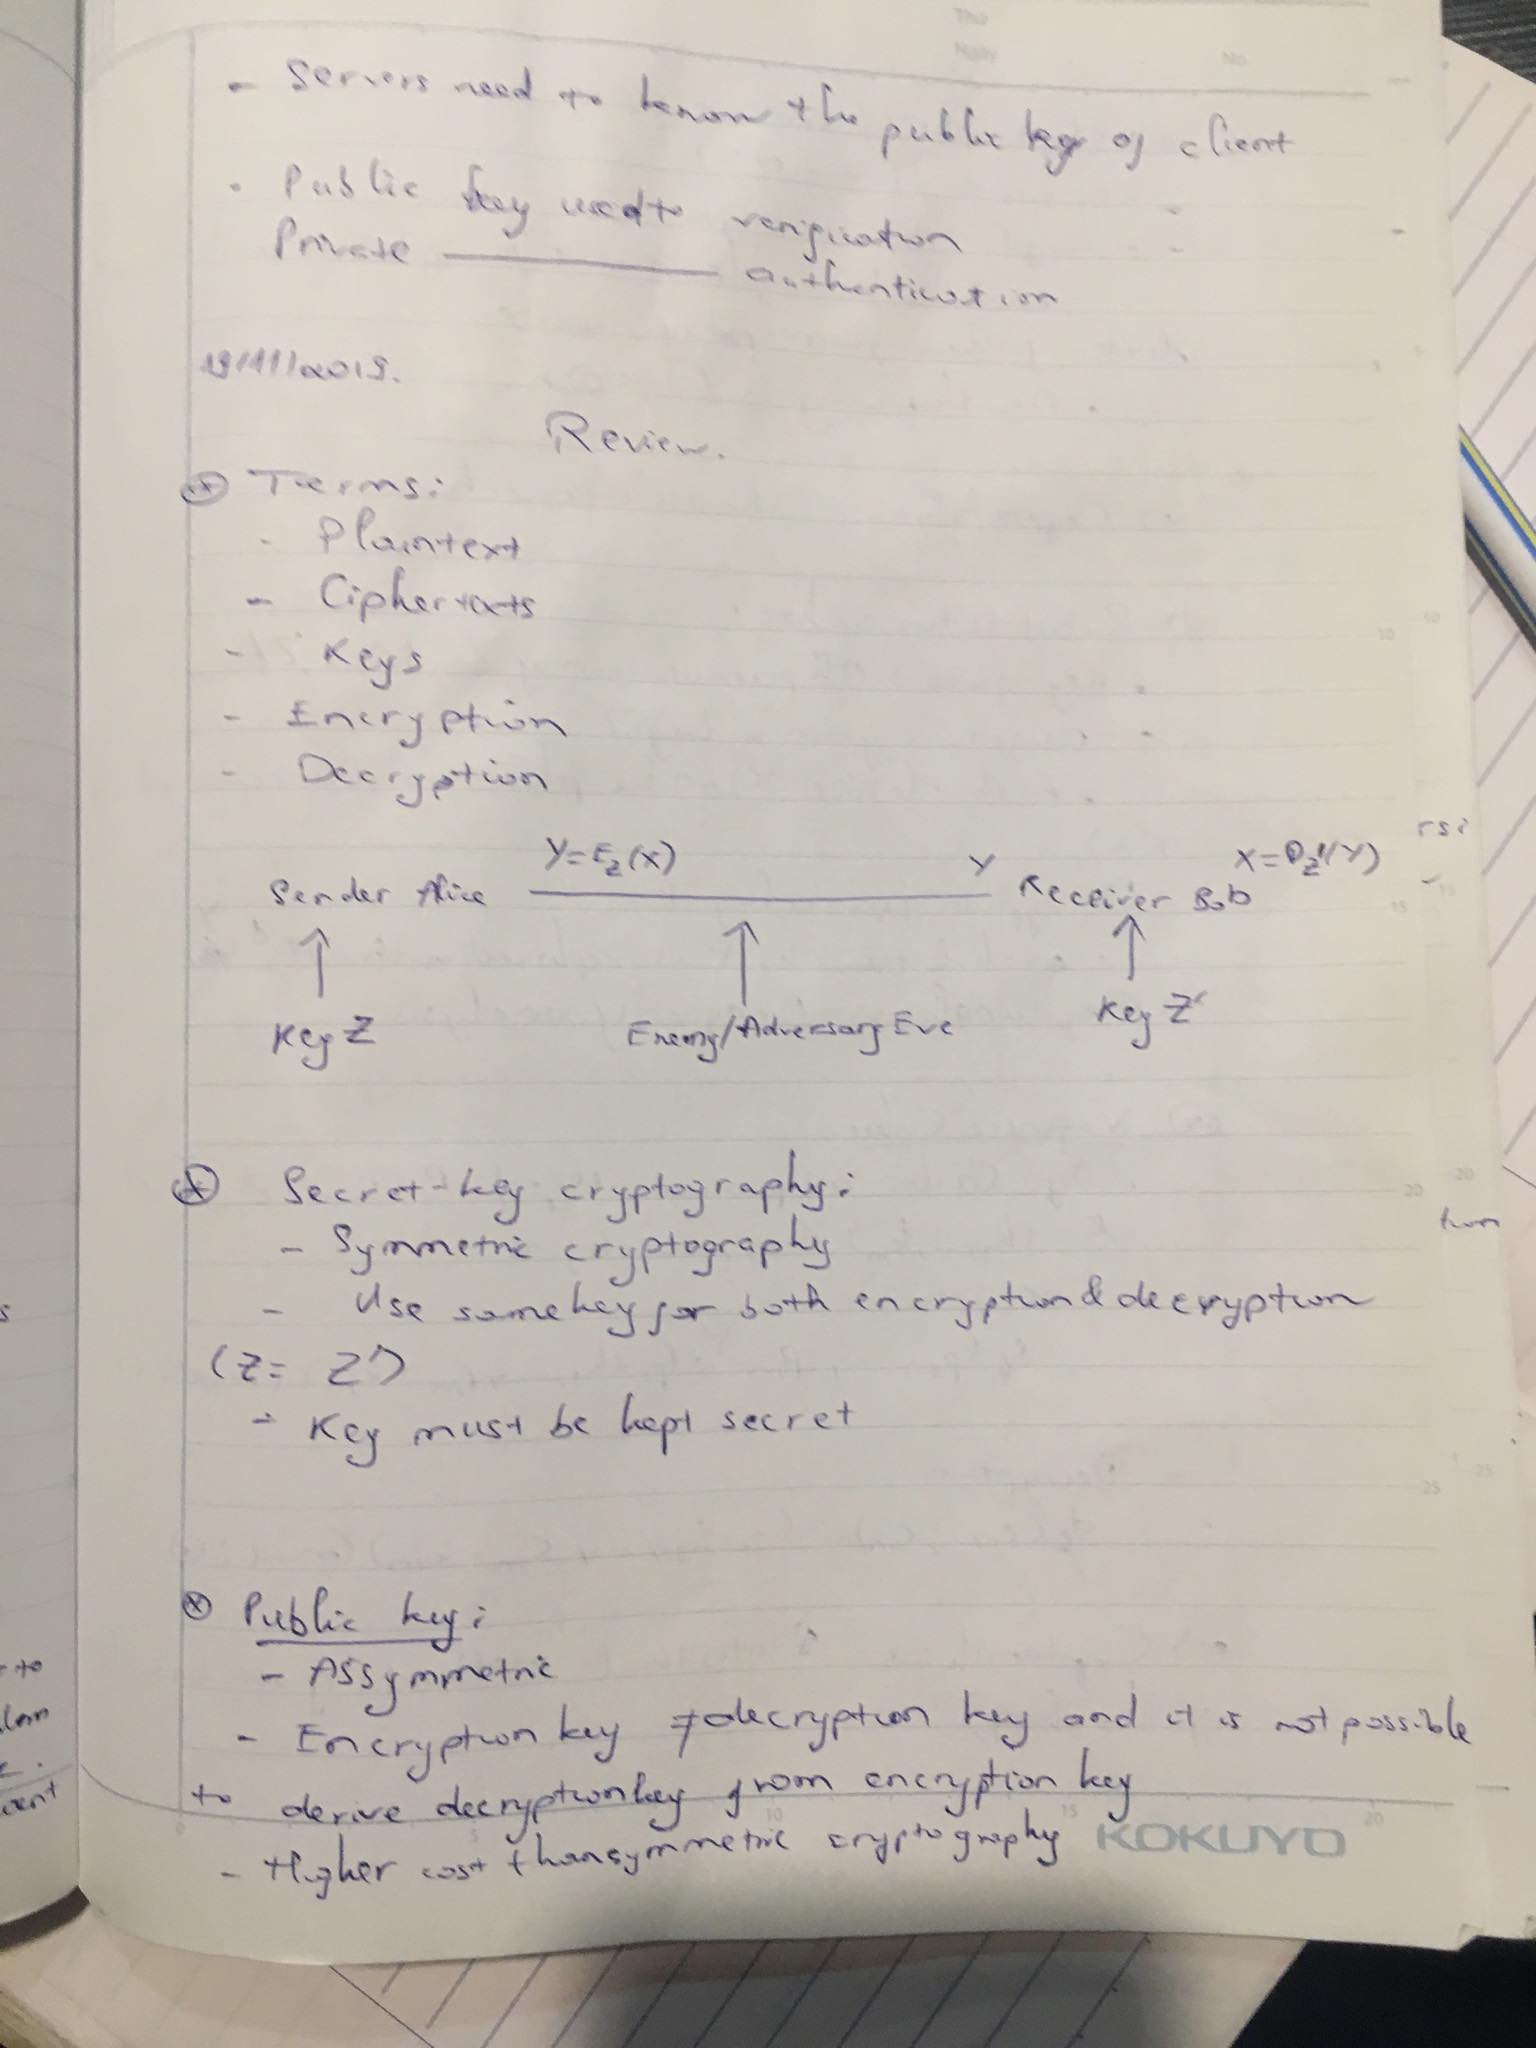 Thứ
Ngày No.
- Servers need to know the public key of client
. Public key used to verification
Private ———— authentication
19/11/2019.
Review.
⊕ Terms:
- Plaintext
- Ciphertexts
- Keys
- Encryption
- Decryption
Y=E_Z(X) Y X=D_Z'(Y)
Sender Alice ———— Receiver Bob
↑ ↑ ↑
Key Z Enemy/Adversary Eve Key Z'
⊕ Secret-key cryptography:
- Symmetric cryptography
- Use same key for both encryption & decryption
(Z= Z')
- Key must be kept secret
⊗ Public key:
- Assymmetric
- Encryption key ≠ decryption key and it is not possible
to derive decryption key from encryption key
- Higher cost than symmetric cryptography
KOKUYO